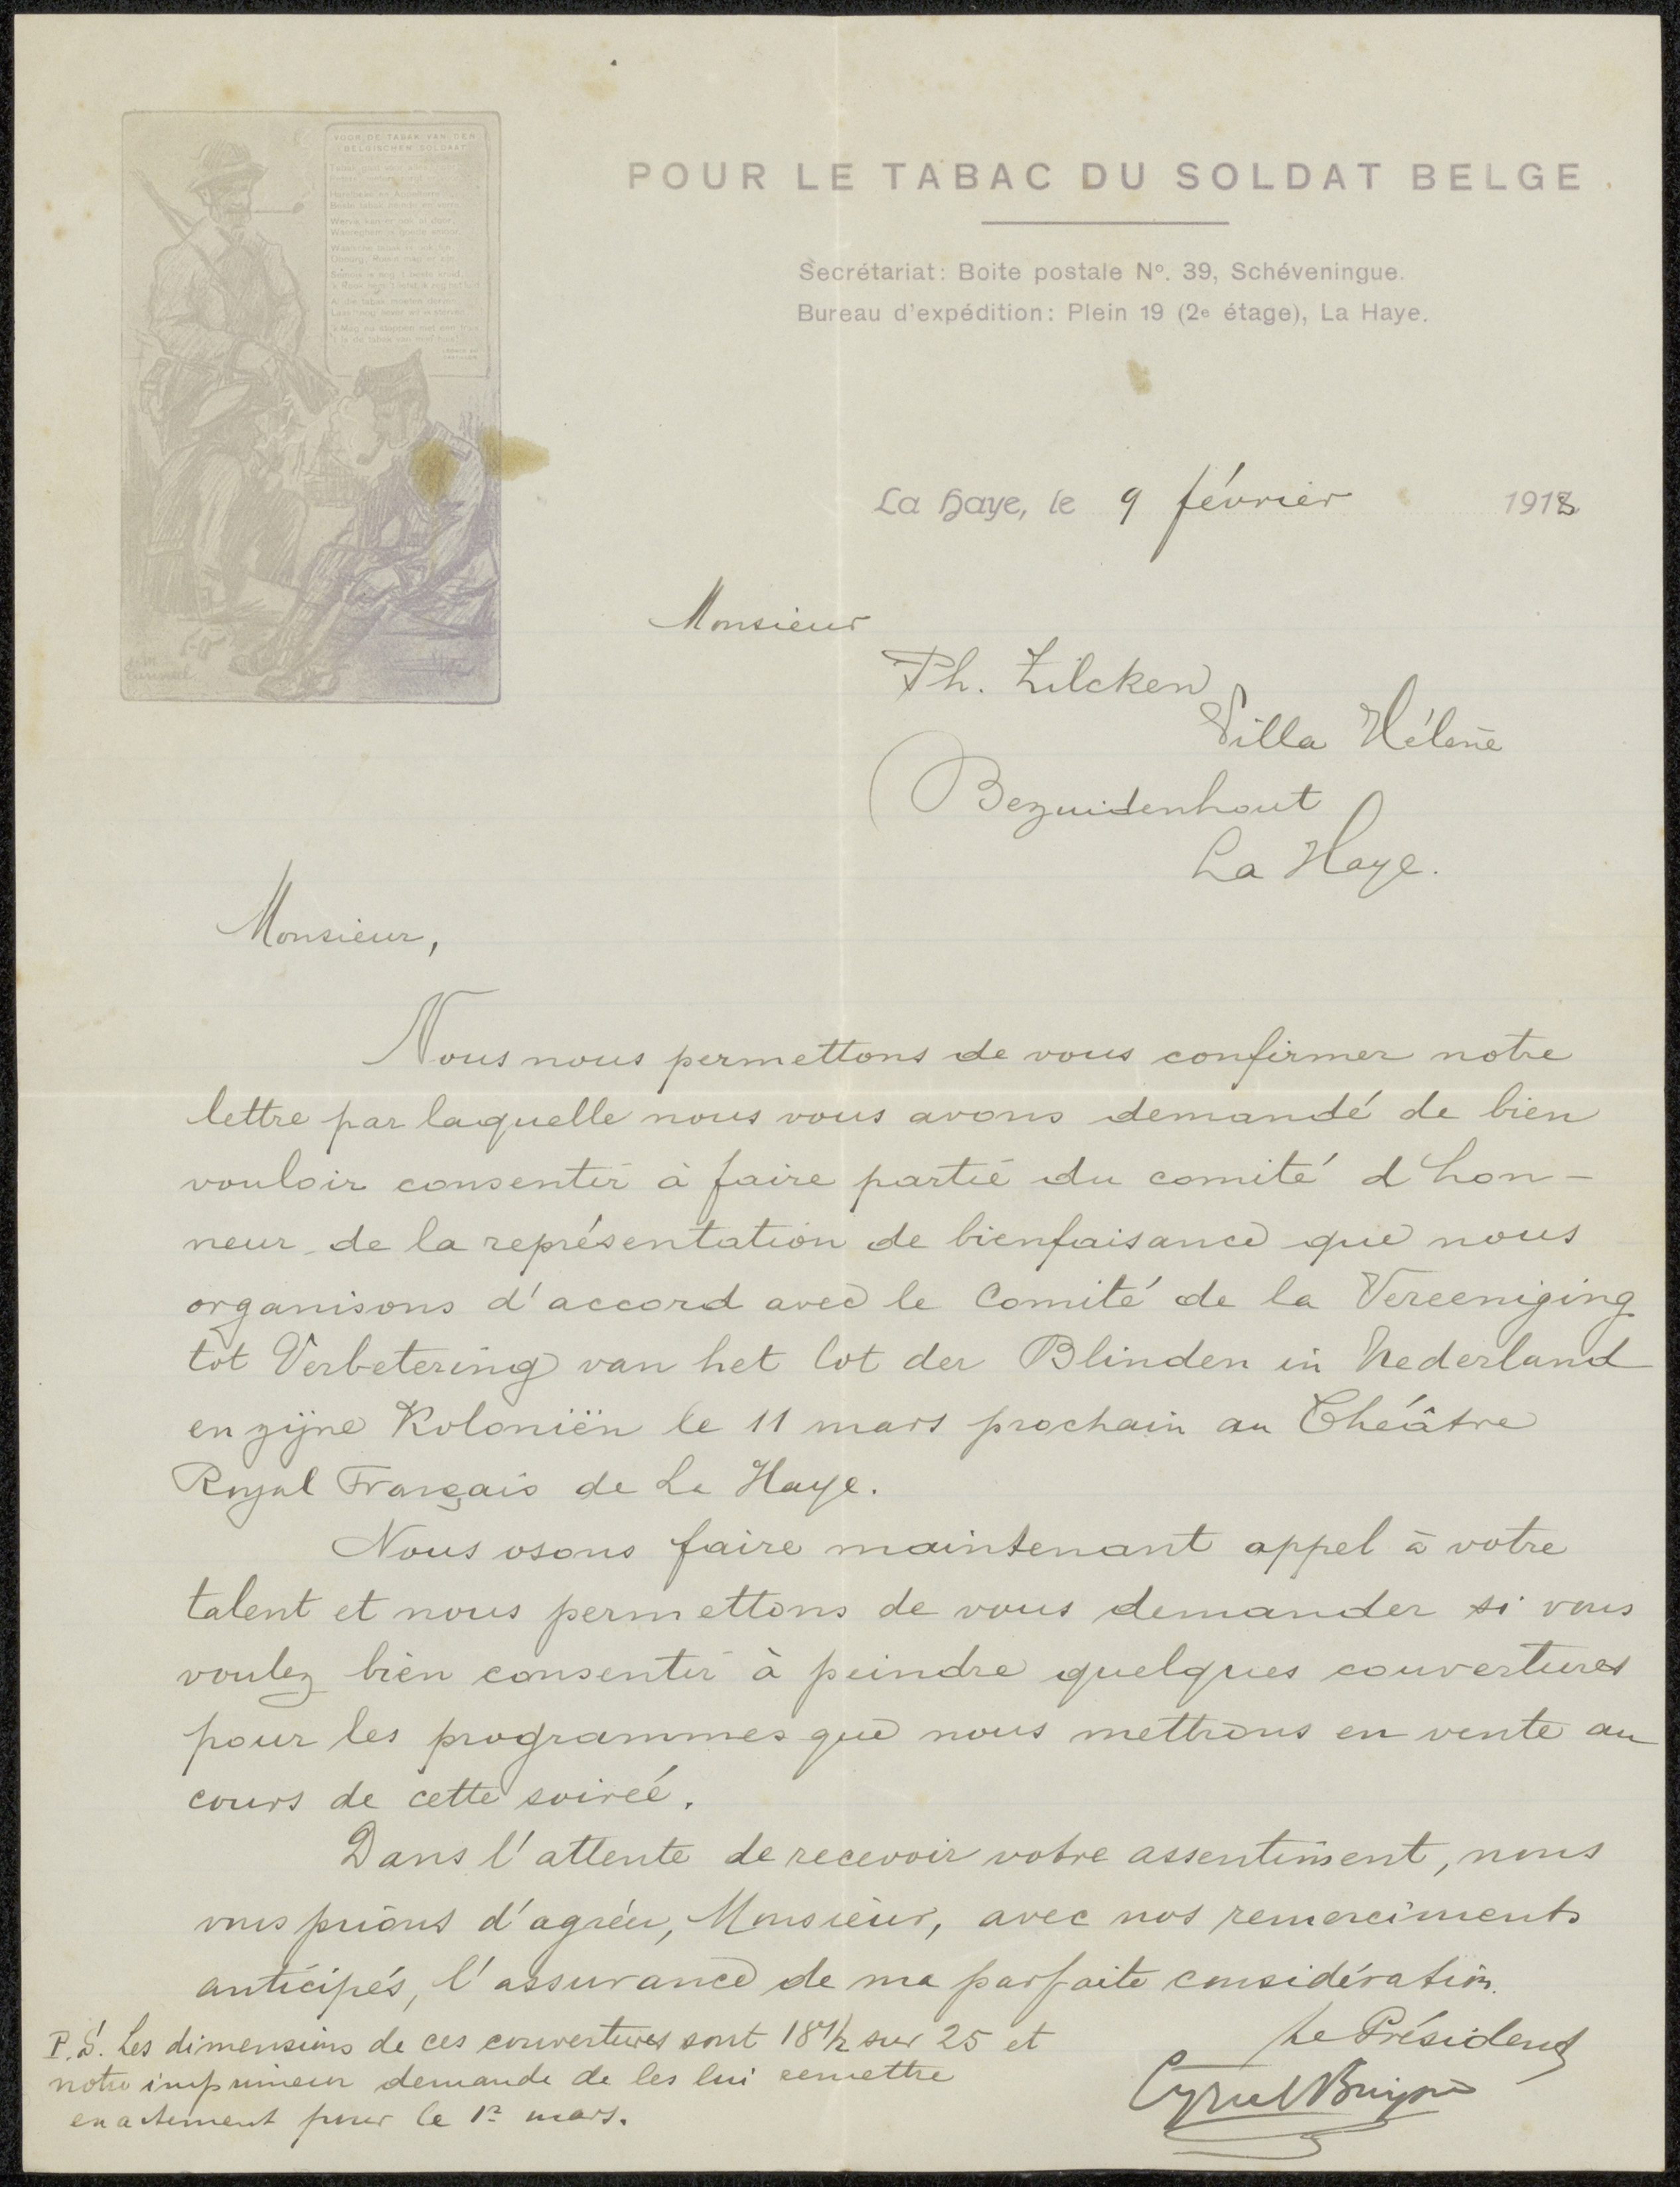 VOOR DE TABAK VAN DEN
BELGISCHEN SOLDAAT
POUR LE TABAC DU SOLDAT BELGE.
Secrétariat: Boite postale Nº. 39, Schéveningue.
Bureau d'expédition: Plein 19 (2e étage), La Haye.
La Haye, le 9 février 1918
Monsieur
Ph. Zilcken
Villa Hélène
Bezuidenhout
La Haye.
Monsieur,
Nous nous permettons de vous confirmer notre
lettre par laquelle nous vous avons demandé de bien
vouloir consentir à faire partie du comité d'hon-
neur de la représentation de bienfaisance que nous
organisons d'accord avec le Comité de la Vereeniging
tot Verbetering van het lot der Blinden in Nederland
en zijne Koloniën le 11 mars prochain au Théâtre
Royal Français de La Haye.
Nous osons faire maintenant appel à votre
talent et nous permettons de vous demander si vous
voulez bien consentir à peindre quelques couvertures
pour les programmes que nous mettrons en vente au
cours de cette soireé.
Dans l'attente de recevoir votre assentiment, nous
vous prions d'agréer, Monsieur, avec nos remerciments
anticipés, l'assurance de ma parfaite considération.
Le Président
Cyriel Buysse
P.S. Les dimensions de ces couvertures sont 18 1/2 sur 25 et
notre imprimeur demande de les lui remettre
exactement pour le 1r mars.